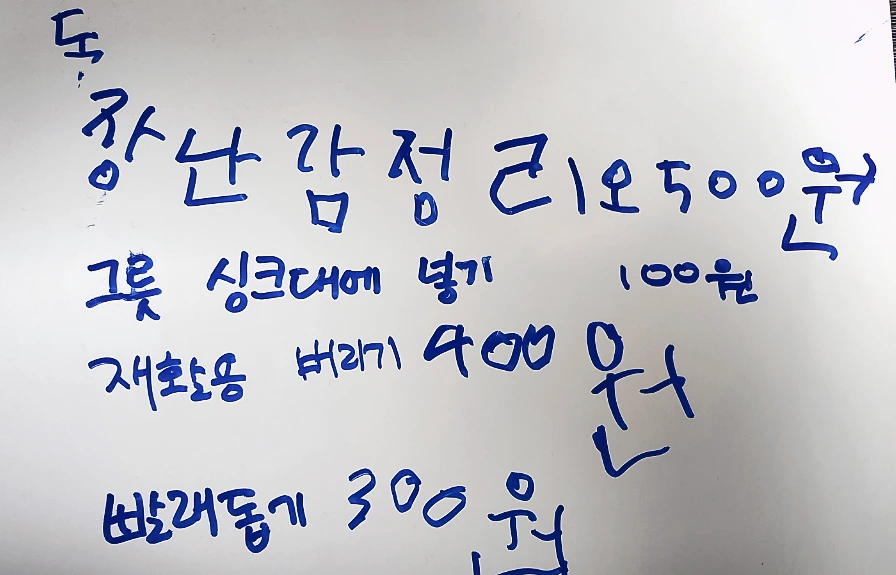 도
장난감정리오500원
그릇 싱크대에 넣기 100원
재활용 버리기 400원
빨래돕기 300원